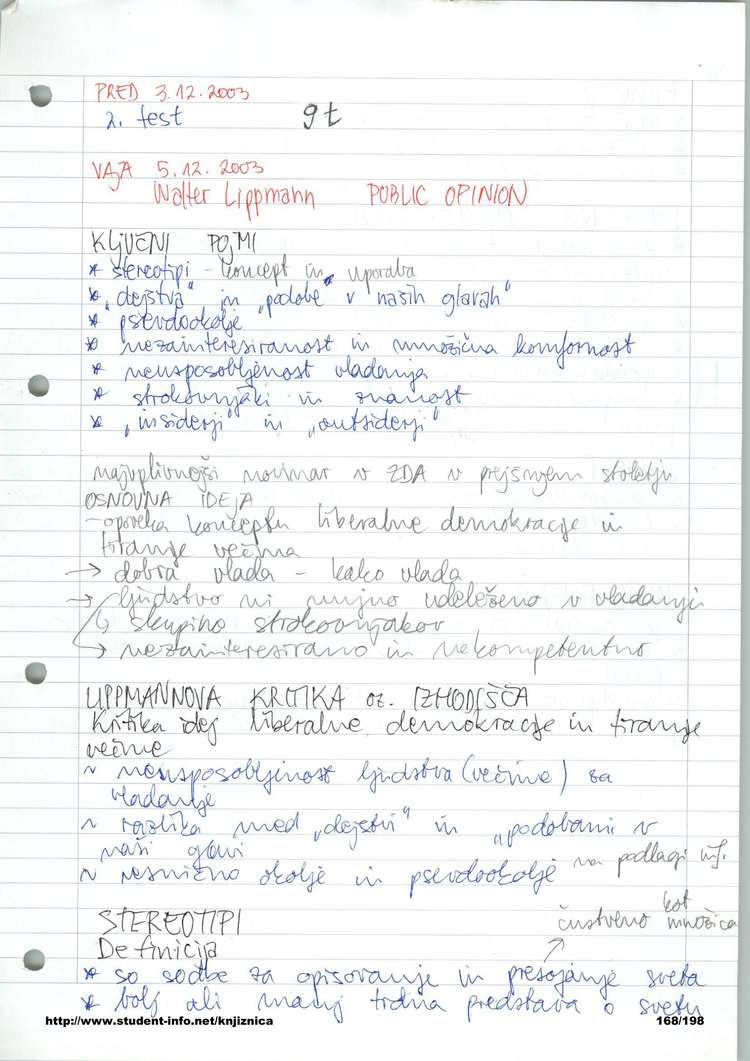 PRED 3.12.2003
2. test 9t
VAJA 5.12.2003
Walter Lippmann PUBLIC OPINION
KLJUČNI POJMI
* stereotipi - koncept in uporaba
* „dejstva" in „podobe v naših glavah"
* psevdookolje
* nezainteresiranost in množična komfornost
* neusposobljenost vladanja
* strokovnjaki in znanost
* „insiderji" in „outsiderji"
najvplivnejši novinar v ZDA v prejšnjem stoletju
OSNOVNA IDEJA
- oporeka konceptu liberalne demokracije in
tiranije večina
→ dobra vlada - kako vlada
→ ljudstvo ni nujno udeleženo v vladanji
↳ skupino strokovnjakov
→ nezainteresirano in nekompetentno
LIPPMANNOVA KRITIKA oz. IZHODIŠČA
Kritika idej liberalne demokracije in tiranije
večine
~ neusposobljenost ljudstva (večine) za
vladanje
~ razlika med „dejstvi" in „podobami v
naši glavi
~ resnično okolje in psevdookolje na podlagi inf.
STEREOTIPI čustveno kot množica
Definicija
* so sodbe za opisovanje in presojanje sveta
* bolj ali manj trdna predstava o svetu
http://www.student-info.net/knjiznica 168/198